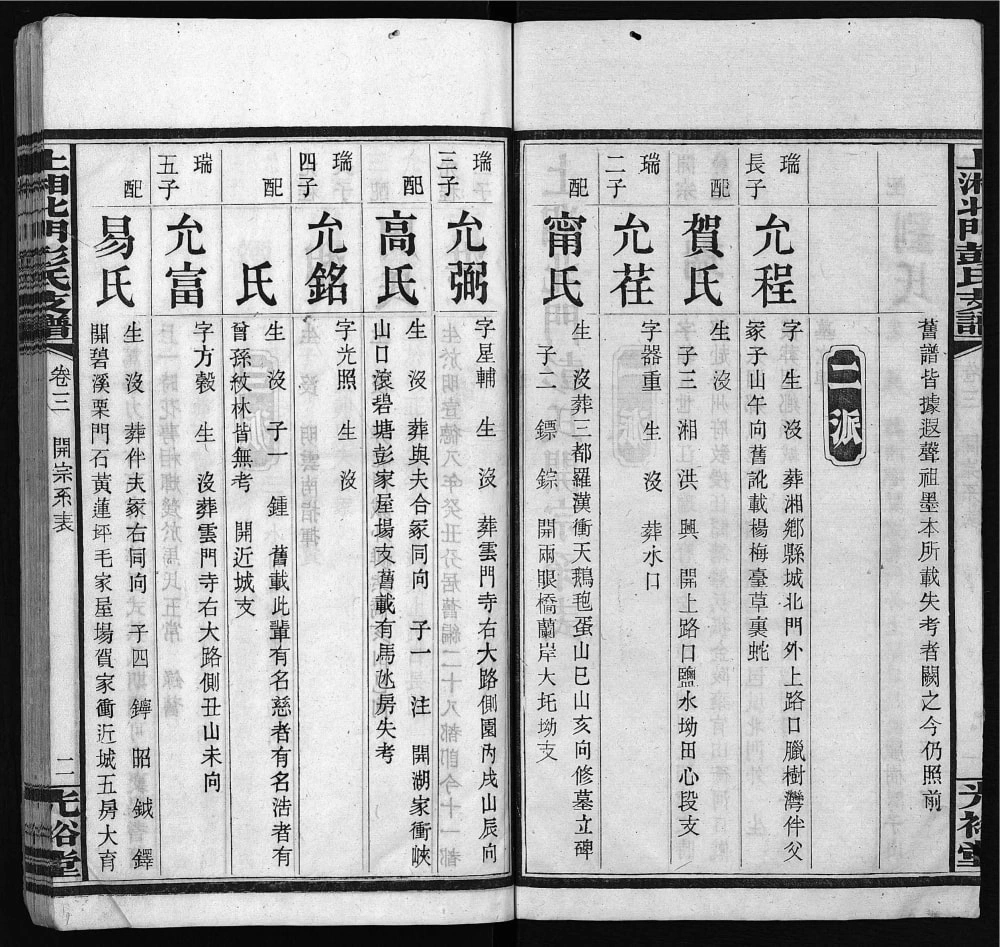 上湘北門彭氏支譜
光裕堂
舊譜皆據遐聲祖墨本所載失考者闕之今仍照前
二派
瑞
長子
允程
字 生 沒 葬湘鄉縣城北門外上路口臘樹灣伴父
冢子山午向舊訛載楊梅臺草裏蛇
配
賀氏
生 沒
子三 湘 洪 興 開上路口鹽水坳田心段支
瑞
二子
允荏
字器重 生 沒 葬水口
配
甯氏
生 沒葬三都羅漢衝天鵝毑蛋山巳山亥向修墓立碑
子二 鏢 錝 開兩眼橋蘭岸大圫坳支
瑞
三子
允弼
字星輔 生 沒 葬雲門寺右大路側園內戌山辰向
配
高氏
生 沒 葬與夫合冢同向 子一 注 開湖家衝峽
山口滾碧塘彭家屋場支舊載有馬氹房失考
瑞
四子
允銘
字光照 生 沒
配
氏
生 沒 子一 鍾 舊載此輩有名慈者有名浩者有
曾孫紋林皆無考 開近城支
瑞
五子
允富
字方穀 生 沒葬雲門寺右大路側丑山未向
配
易氏
生 沒 葬伴夫冢右同向 子四 鑄 昭 鉞 鐸
開碧溪栗門石黃蓮坪毛家屋場賀家衝近城五房大育
上湘北門彭氏支譜
卷三 開宗系表
二
光裕堂